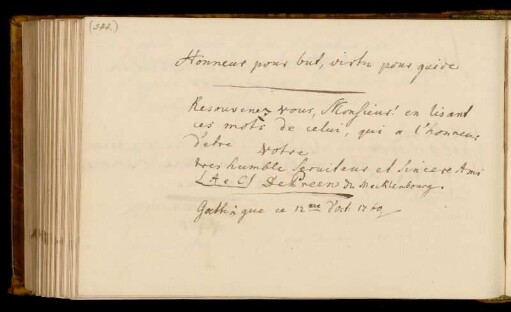 (322.)
Honneur pour but, virtu pour guide
Resouvenez vous, Monsieur! en lisant
ces mots de celui, qui a l'honneur
d'etre Votre
tres humble Serviteur et Sincere Ami
De Preen du Mecklenbourg.
Gottingue ce 12me d'oct. 1760